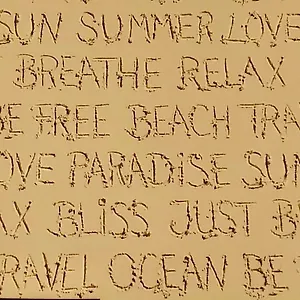 SUN SUMMER LOVE
BREATHE RELAX
BE FREE BEACH TRA
OVE PARADISE SUN
AX BLiSS JUST B
RAVEL OCEAN BE